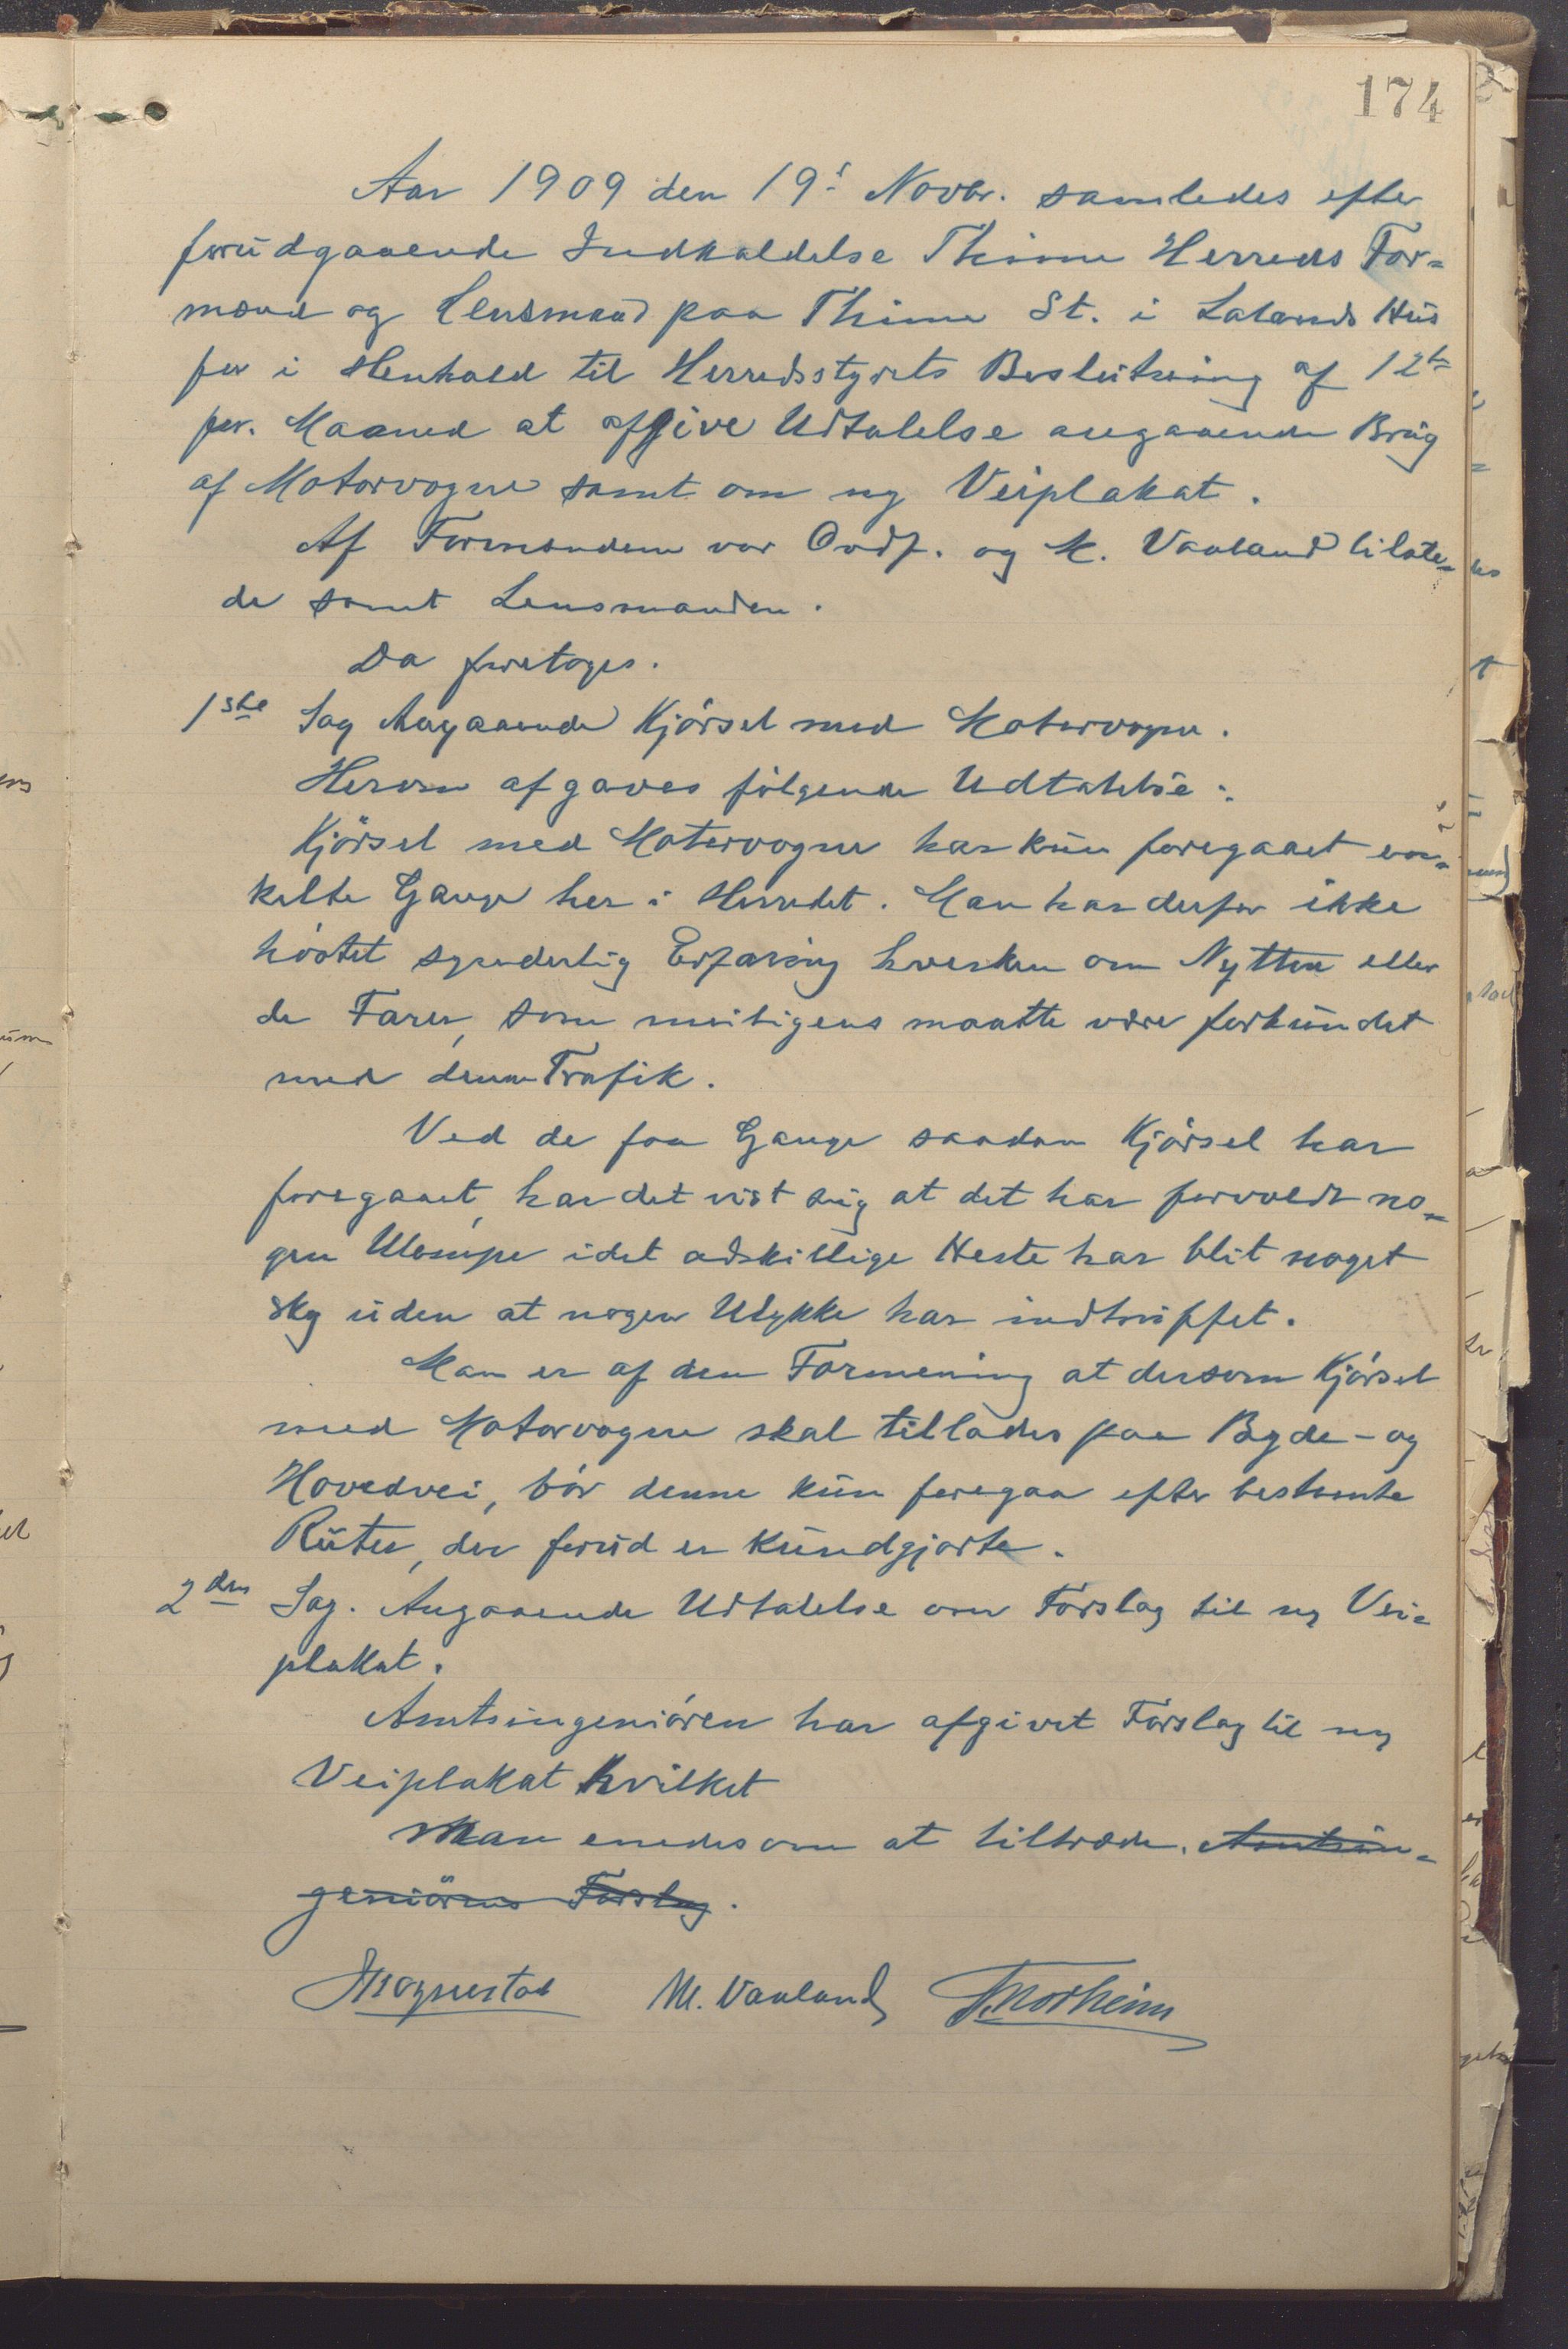 174
Aar 1909 den 19s Novbr. samledes efter
forudgaaende Indkaldelse Thime Herreds For=
mænd og Lensmand paa Thime St. i Lalands Hus
for i Henhold til Herredsstyrets Beslutning af 12te
for. Maaned at afgive Udtalelse angaaende Brug
af Motorvogne samt om ny Veiplakat.
Af Formændene var Ordf. og M. Vaaland tilste=
de samt Lensmanden.
Da foretoges.
1ste Sag Angaaende Kjørsel med Motorvogne.
Herom afgaves følgende Udtalelse:
Kjørsel med Motorvogne har kun foregaaet en=
kelte Gange her i Herredet. Man har derfor ikke
høstet synderlig Erfaring hverken om Nytten eller
de Farer, som muligens maatte være forbundet
med denne Trafik.
Ved de faa Gange saadan Kjørsel har
foregaaet, har det vist sig at det har forvoldt no=
gen Ulempe idet adskillige Heste har blit noget
sky uden at nogen Ulykke har indtruffet.
Man er af den Formening at dersom Kjørsel
med Motorvogne skal tillades paa Bygde- og
Hovedvei, bør denne kun foregaa efter bestemte
Ruter, der forud er kundgjorte.
2den Sag. Angaaende Udtalelse om Forslag til ny Vei=
plakat.
Amtsingeniøren har afgivet Forslag til ny
Veiplakat hvilket
Man enedes om at tiltræde. Amtsin=
geniørens Forslag.
M. Vaaland